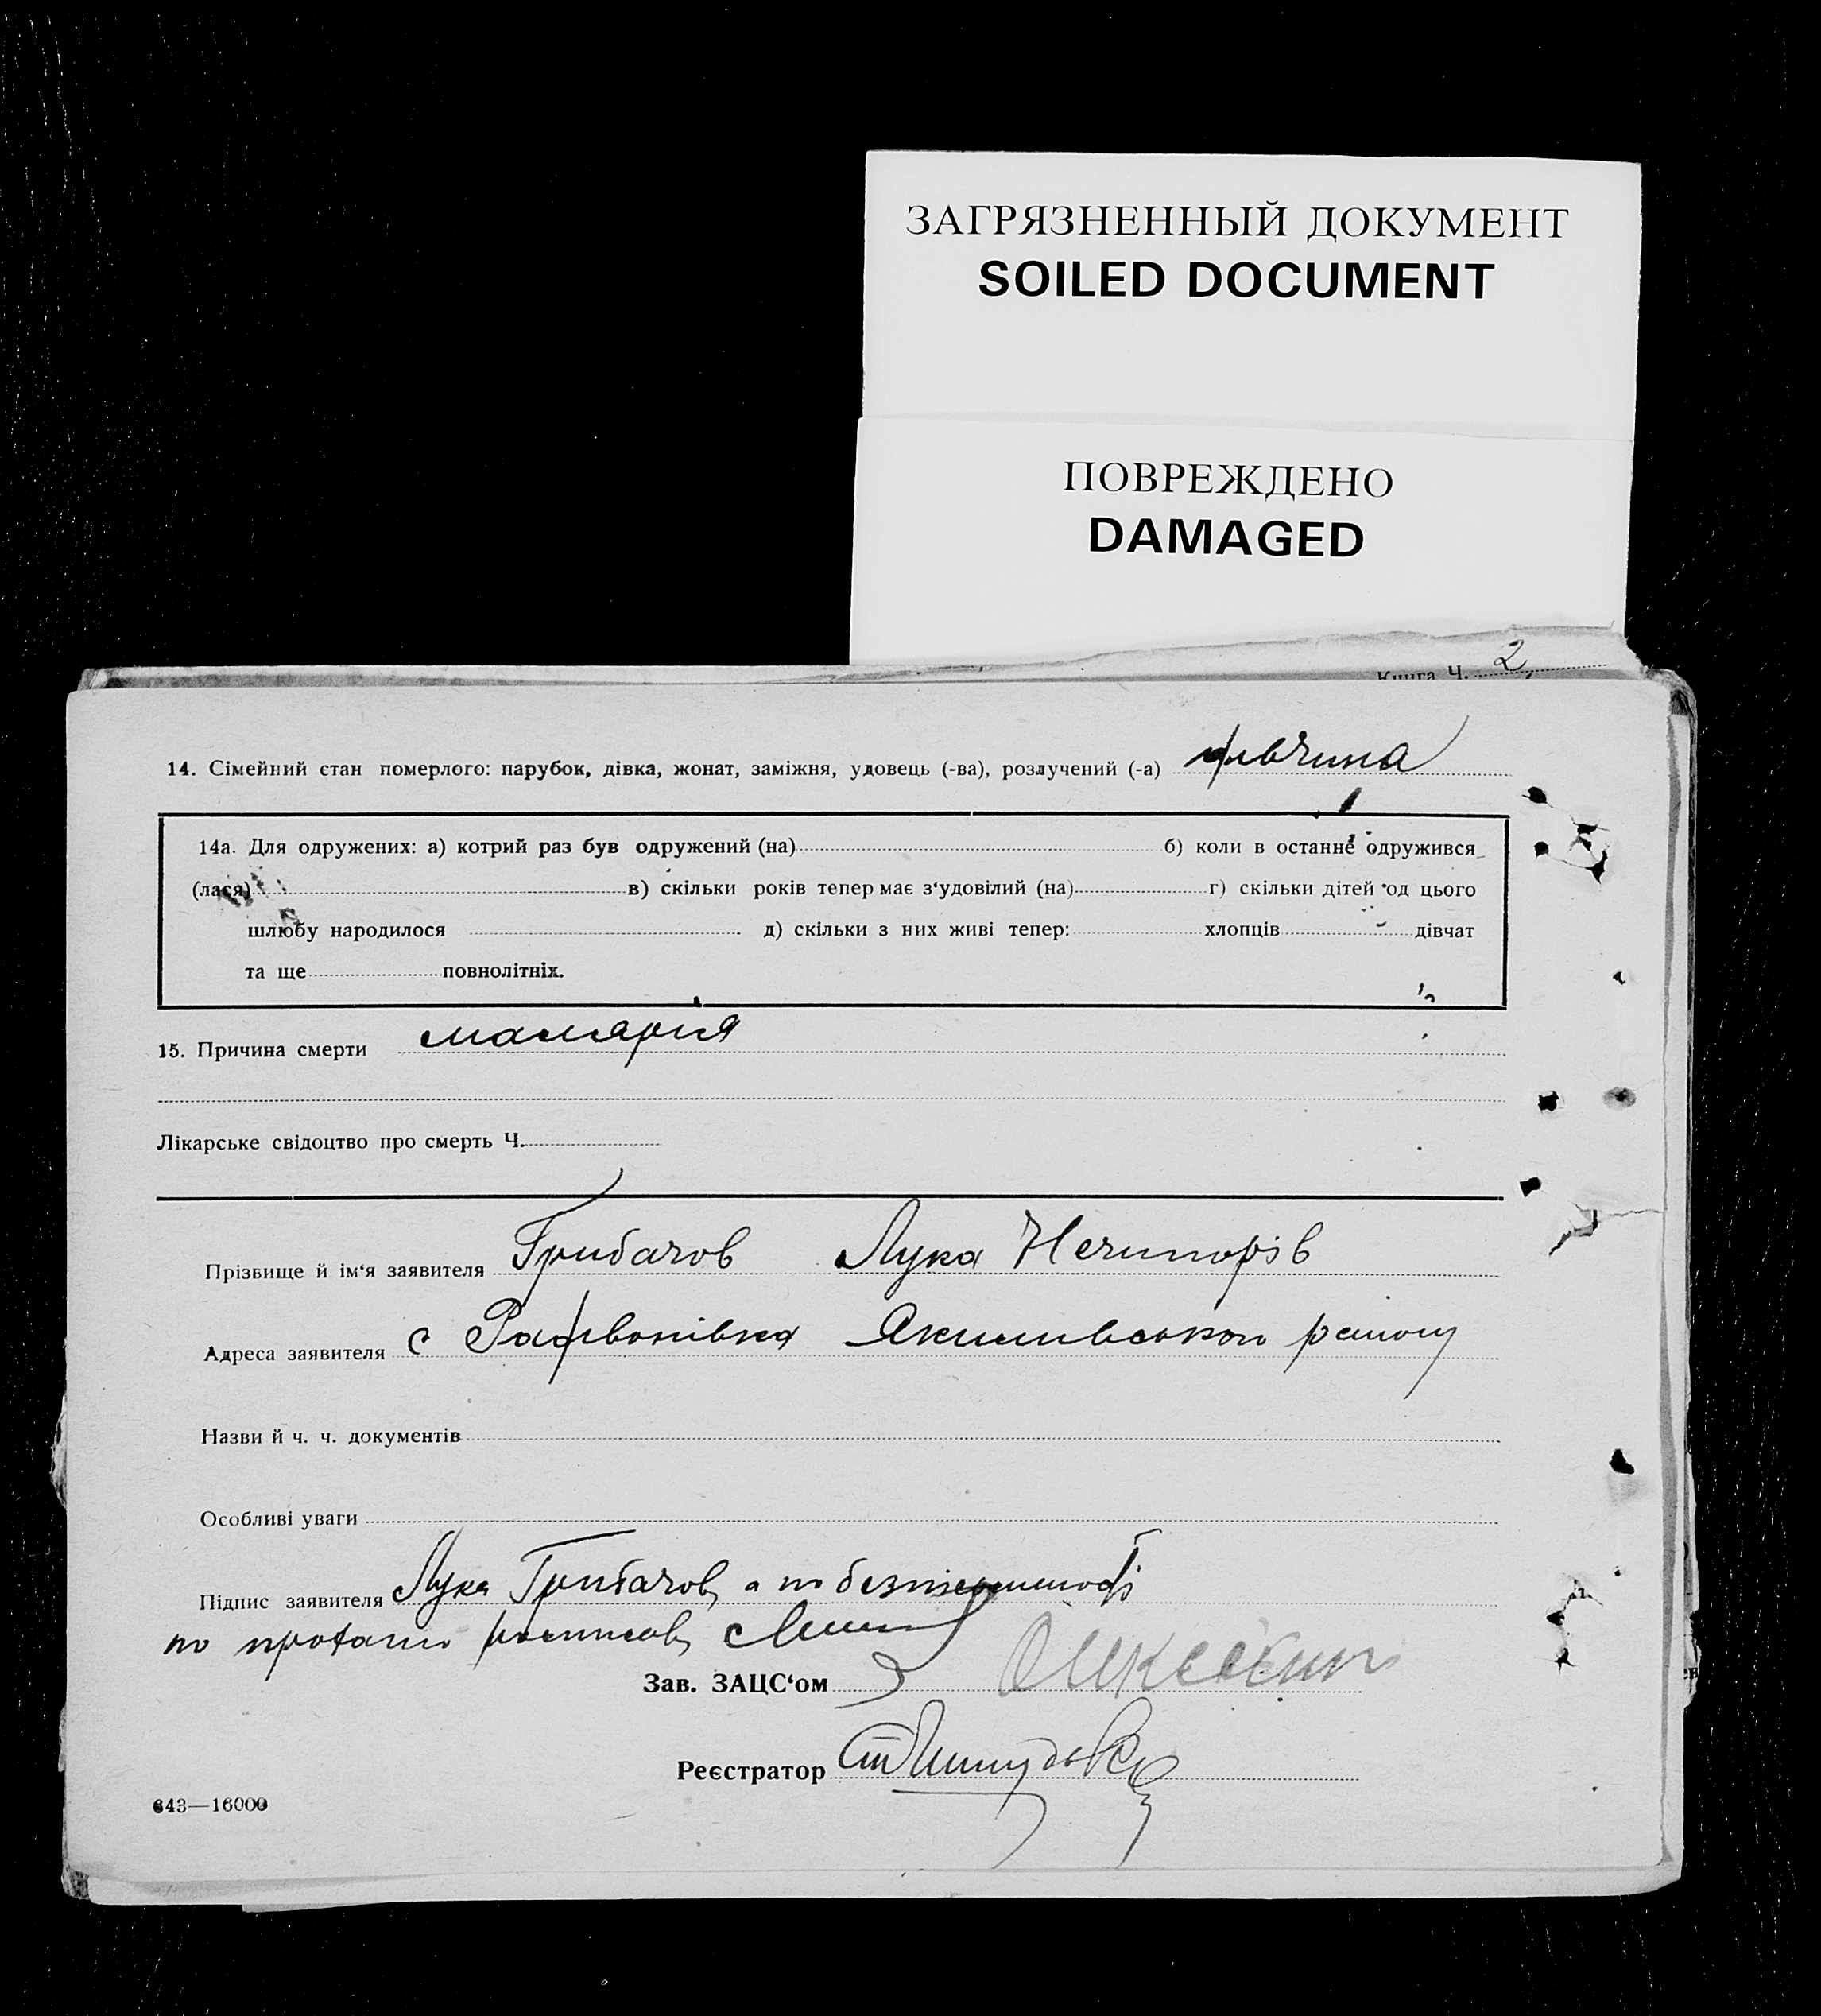 ЗАГРЯЗНЕННЫЙ ДОКУМЕНТ
SOILED DOCUMENT
ПОВРЕЖДЕНО
DAMAGED
Книга Ч. 2
14. Сімейний стан померлого: парубок, дівка, жонат, заміжня, удовець (-ва), розлучений (-а) дівчина
14а. Для одружених: а) котрий раз був одружений (на) б) коли в останнє одружився
(лася) в) скільки років тепер має з‘удовілий (на) г) скільки дітей од цього
шлюбу народилося д) скільки з них живі тепер: хлопців дівчат
та ще повнолітніх.
15. Причина смерти малярія
Лікарське свідоцтво про смерть Ч.
Прізвище й ім‘я заявителя Грибачов Лука Нечипорів
Адреса заявителя с Радівонівка Якимівського району
Назви й ч. ч. документів
Особливі уваги
Підпис заявителя Лука Грибачов, а по безписьменості
по проханю росписав,
Зав. ЗАЦС‘ом
Реєстратор
643—16000